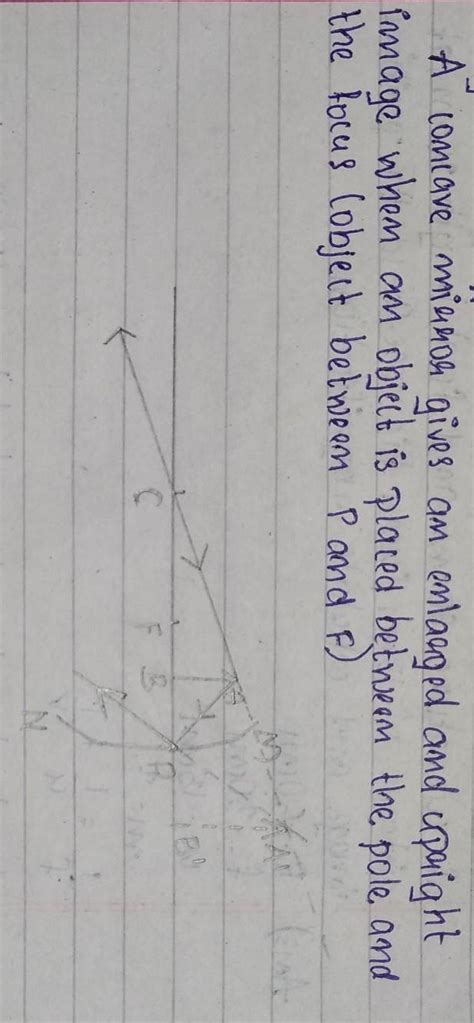 A concave mirror gives an enlarged and upright
image when an object is placed between the pole and
the focus (object between P and F)
M
A'
C F B P B'
N